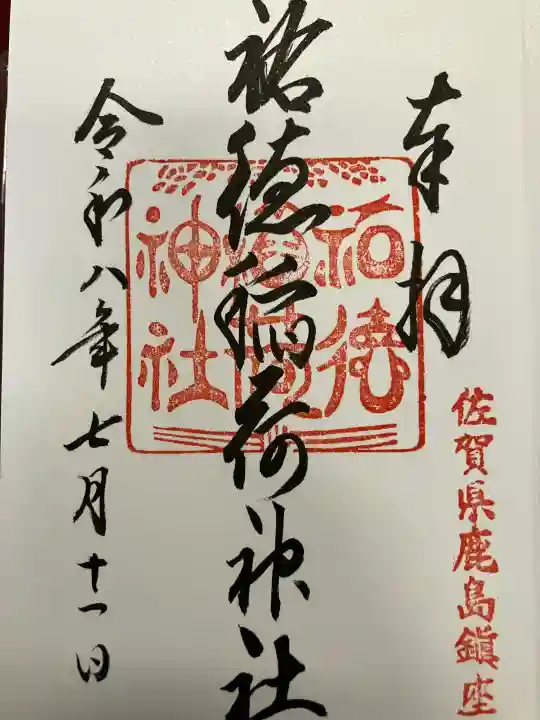 奉拝
佐賀県鹿島鎮座
祐徳稲荷神社
祐徳
稲荷
神社
令和八年七月十一日